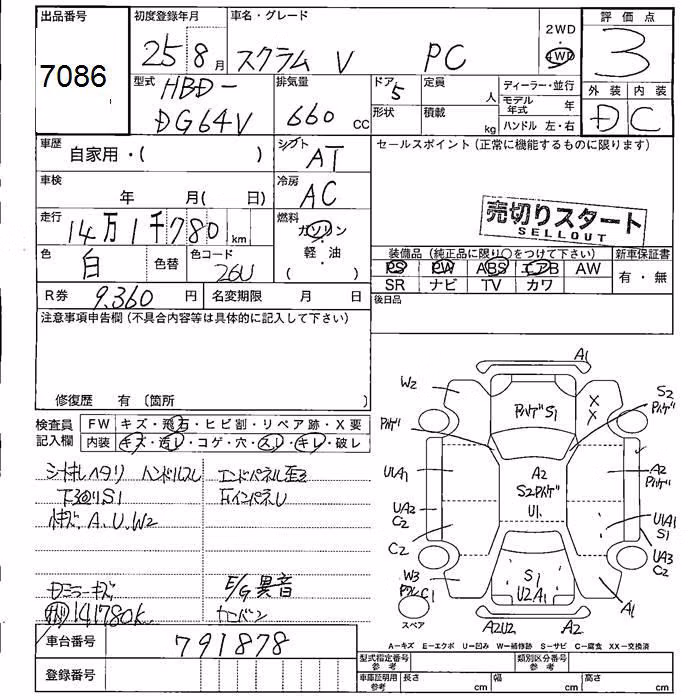 出品番号
7086
初度登録年月
25 8月
車名・グレード
スクラム V PC
2WD
・
4WD
評価点
3
型式
HBD-
DG64V
排気量
660 cc
ドア
5
形状
定員
人
積載
kg
ディーラー・並行
モデル年式 年
ハンドル 左・右
外装 内装
D C
車歴
自家用・( )
シフト
AT
セールスポイント (正常に機能するものに限ります)
車検
年 月( 日)
冷房
AC
売切りスタート
SELLOUT
走行
14万1千780 km
燃料
ガソリン
・
軽・油
( )
色
白
色替
色コード
26U
装備品 (純正品に限り○をつけて下さい)
新車保証書
PS PW ABS エアB AW
有・無
SR ナビ TV カワ
R券 9.360 円
名変期限 月 日
後日品
注意事項申告欄 (不具合内容等は具体的に記入して下さい)
修復歴 有 〔箇所
検査員
記入欄
FW キズ・飛石・ヒビ割・リペア跡・X要
内装 キズ・汚レ・コゲ・穴・スレ・キレ・破レ
シートキレ ヘタリ ハンドルスレ
エンドパネル歪
下廻りS1
小キズ.A.U.W2
Dミラーキズ
E/G異音
141780K
カーボン
車台番号
791878
登録番号
A1
W2
パンゲ S1
X
X
S2
パンゲ
パンゲ
U1A1
A2
S2パンゲ
U1
A2
パンゲ
UA2
C2
U1A1
S1
C2
UA3
C2
W3
C1
S1
U2A1
A1
スペア
A2U2
A2
A−キズ E−エクボ U−凹み W−補修跡 S−サビ C−腐食 XX−交換済
型式指定番号
参考
類別区分番号
参考
車庫証明用
参考
長さ cm
幅 cm
高さ cm